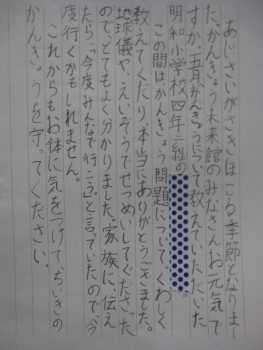 あじさいがさきほこる季節となりまし
た。かんきょう未来館のみなさん、お元気で
すか。五月かんきょうについて教えていただいた
明和小学校四年二組の
この間はかんきょう問題について、くわしく
教えてくださり、本当にありがとうございました。
地球儀や、えいぞうでせつめいしてくださった
ので、とてもよく分かりました。家族に、伝え
たら、「今度みんなで行こう」と言っていたので今
度行くかもしれません。
これからもお体に気をつけて、ちいきの
かんきょうを守ってください。